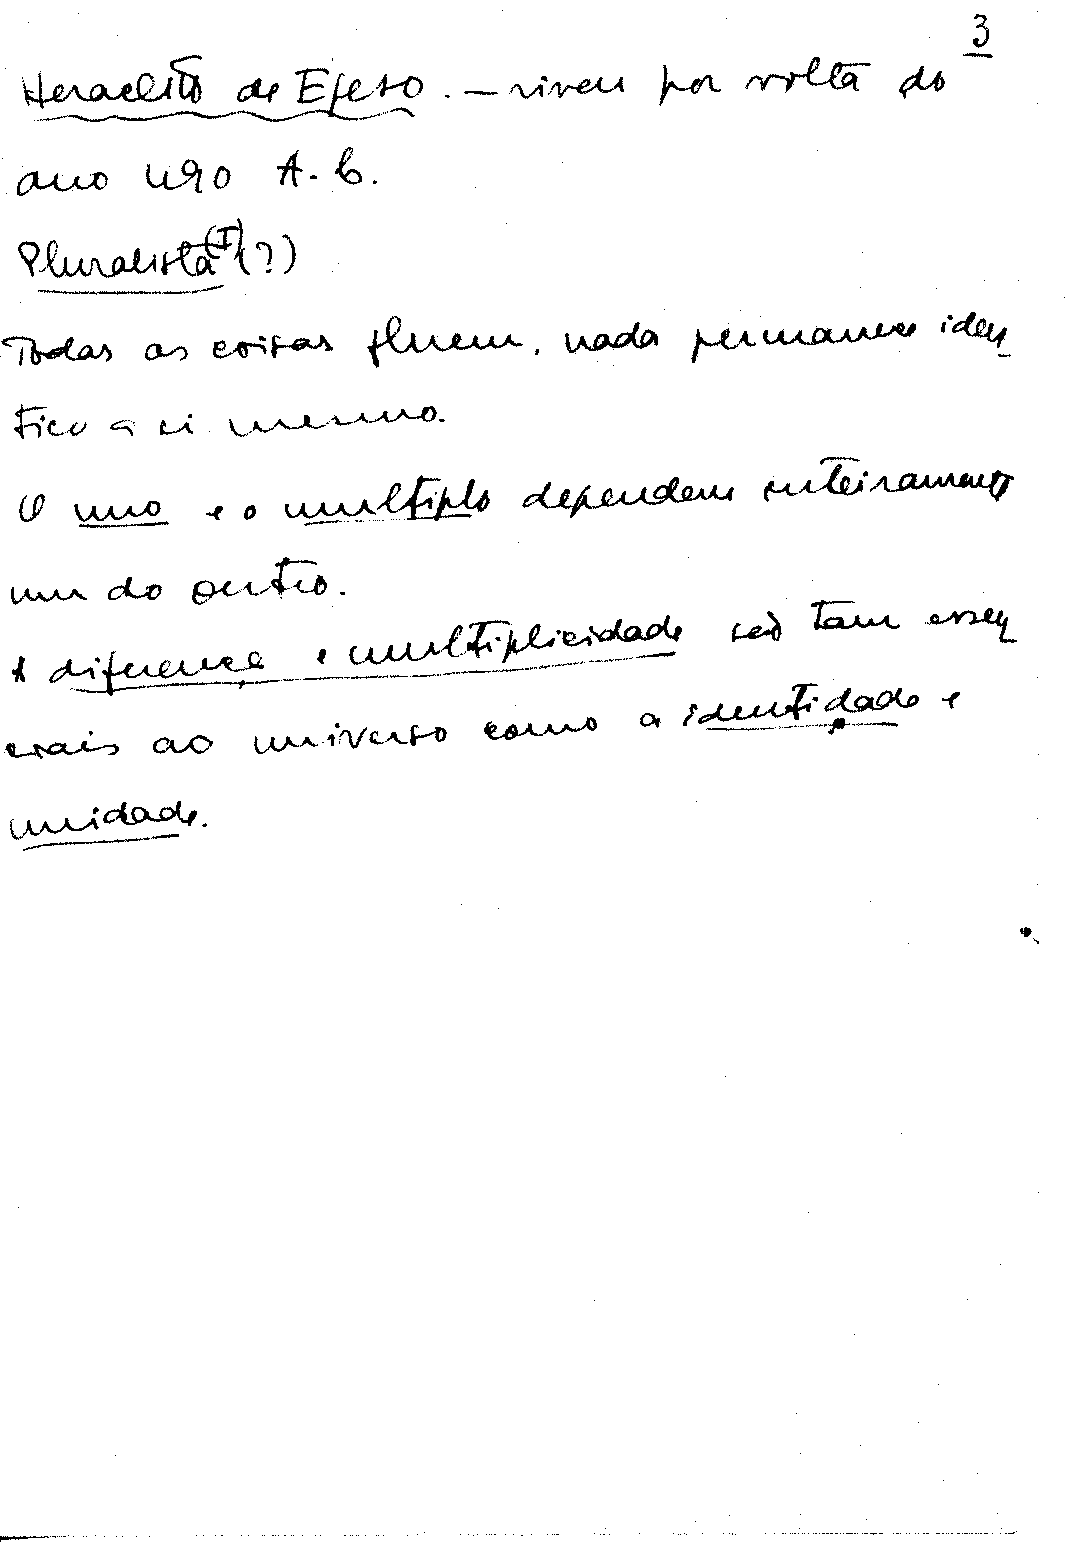 3
Heraclito de Efeso. – viveu por volta do
ano 490 A.C.
Pluralista (I) (?)
Todas as coisas fluem, nada permanece iden
tico a si mesmo.
O uno e o multiplo dependem inteiramente
um do outro.
A diferença e multiplicidade são tam essen
ciais ao universo como a identidade e
unidade.